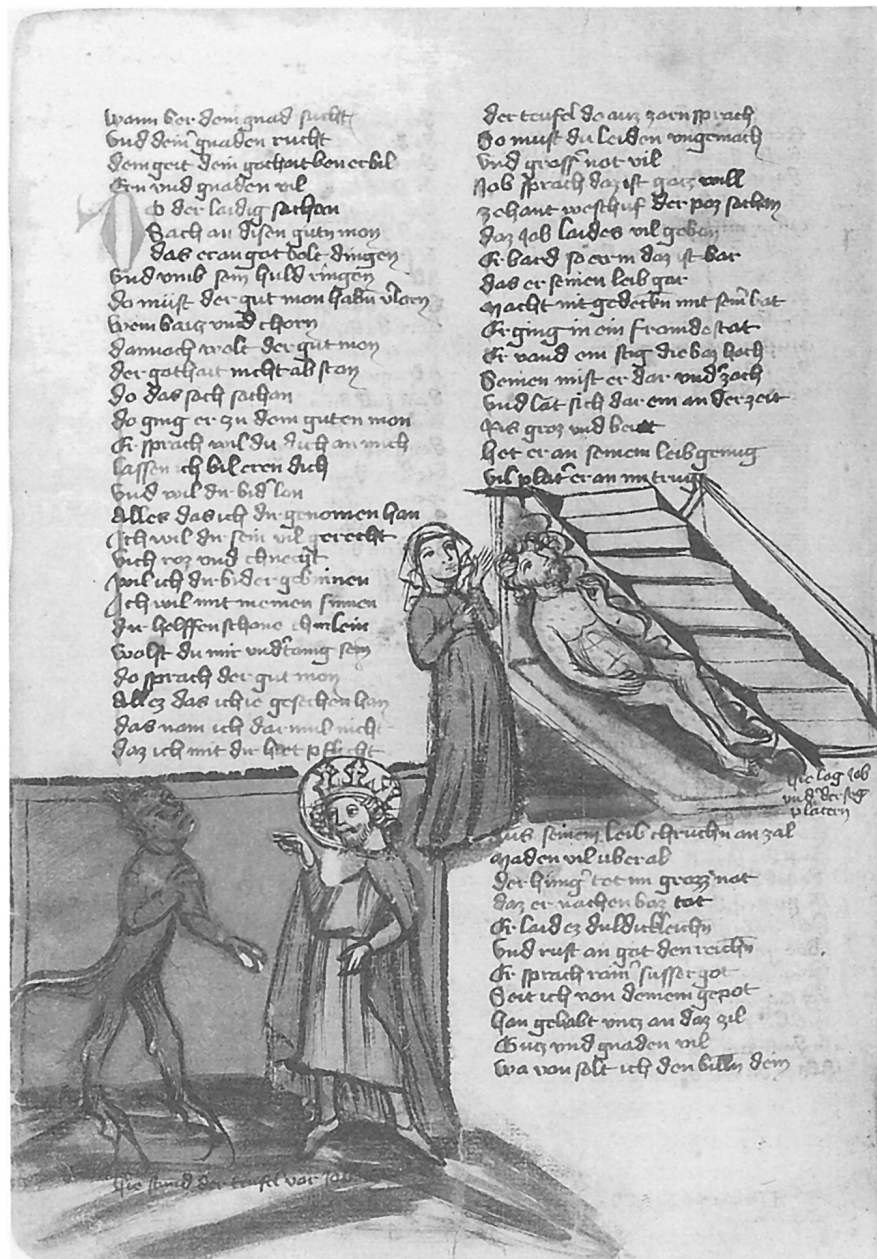 wann wer dein gnad sucht
vnd deinˀ gnaden rucht
dem geit dein gothait
Ern vnd gnaden vil
Do der laidig sathan
Sach an disen gutn mon
das er an got wolt dingen
vnd vmb sein huld ringen
do müst der gut mon habn vˀlorn
wein waitz vnd chorn
dannoch wolt der gut mon
der gothait nicht ab stan
do das sach sathan
do ging er zu dem guten mon
Er sprach wil du dich an mich
lassen ich wil eren dich
vnd wil dir widˀ lon
Alles das ich dir genomen han
Ich wil dir sein vil gerecht
vich roz vnd chnecht
wil ich dir wider gebinnen
Ich wil mit meinen sinnen
dir helffen schone
wolst du mir vndˀtanig sein
do sprach der gut mon
Allez das ich ie gesechen han
das nam ich dar vmb nicht
daz ich mit dir hiet pflicht
Hie stund der teufel vor Job
der teufel do auz zorn sprach
So must du leiden vngemach
vnd grossˀ not vil
Job sprach daz ist gotz will
zehant weschuf der poz sathan
daz Job laides vil gewan
Er ward so erm daz ist war
das er seinen leib gar
macht nit gedeckn mit seinˀ wat
Er ging in ein fromde stat
Er vand ein stig die waz hoch
Seinen mist er dar vndˀ zoch
vnd lait sich dar ein an der zeit
Eis groz vnd weit
het er an seinem leib genug
vil platˀ er an im trug
Hie lag Job
vndˀ der steg
platern
Aus seinem leib chruchn an zal
maden vil vber al
der hungˀ tet im grozz not
daz er nachen waz tot
Er laid ez duldickleichn
vnd ruft an got den reichn
Er sprach rainˀ susser got
Seit ich von deinem gepot
han gehabt vntz an daz zil
Gutz vnd gnaden vil
wa von solt ich den willn dein